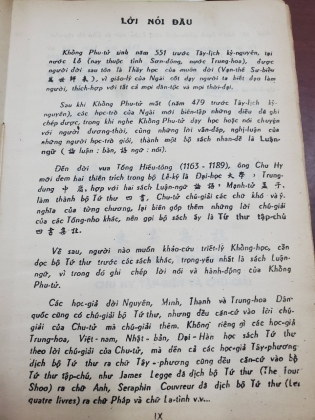 LỜI NÓI ĐẦU
Khổng Phu-tử sinh năm 551 trước Tây-lịch kỷ-nguyên, tại
nước Lỗ (nay thuộc tỉnh Sơn-đông, nước Trung-hoa), được
người đời sau tôn là Thầy học của muôn đời (Vạn-thế Sư-biểu
萬世師表), vì giáo-lý của Ngài cốt dạy người ta biết đạo làm
người, thích-hợp với tất cả mọi dân-tộc và mọi thời-đại.
Sau khi Khổng Phu-tử mất (năm 479 trước Tây-lịch kỷ-
nguyên), các học-trò của Ngài mới biên-tập những điều đã ghi
chép được, trong khi nghe Khổng Phu-tử dạy học hoặc nói chuyện
với người đương-thời, cùng những lời vấn-đáp, nghị-luận của
những người học-trò giỏi, thành một bộ sách nhan-đề là Luận-
ngữ (luận: bàn, ngữ: nói).
Đến đời vua Tống Hiếu-tông (1163 - 1189), ông Chu Hy
mới đem hai thiên trích trong bộ Lễ-ký là Đại-học 大學, Trung-
dung 中庸, hợp với hai sách Luận-ngữ 論語, Mạnh-tử 孟子,
làm thành bộ Tứ thư 四書. Chu-tử chú-giải các chữ khó và ý-
nghĩa của từng chương, lại biên góp thêm những lời chú-giải
của các Tống-nho khác, nên gọi bộ sách ấy là Tứ thư tập-chú
四書集註.
Về sau, người nào muốn khảo-cứu triết-lý Khổng-học, cần
đọc bộ Tứ thư trước các sách khác, trọng-yếu nhất là sách Luận-
ngữ, vì trong đó ghi chép lời nói và hành-động của Khổng
Phu-tử.
Các học-giả đời Nguyên, Minh, Thanh và Trung-hoa Dân-
quốc cũng có chú-giải bộ Tứ thư, nhưng đều căn-cứ vào lời chú-
giải của Chu-tử mà chú-giải thêm. Không riêng gì các học-giả
Trung-hoa, Việt-nam, Nhật-bản, Đại-Hàn học sách Tứ thư
theo lời chú-giải của Chu-tử, mà đến cả các học-giả Tây-phương
dịch bộ Tứ thư ra chữ Tây-phương cũng đều căn-cứ vào bộ
Tứ thư tập-chú, như James Legge đã dịch bộ Tứ thư (The four
Shoo) ra chữ Anh, Seraphin Couvreur đã dịch bộ Tứ thư (Les
quatre livres) ra chữ Pháp và chữ La-tinh v.v...
IX